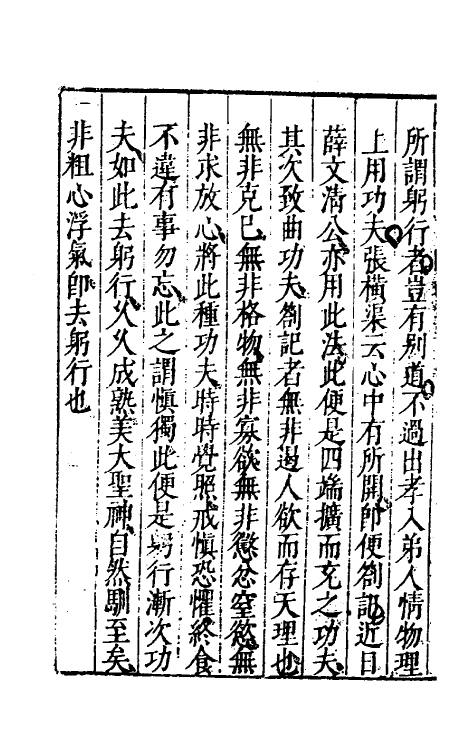 所謂躬行者豈有别道不過出孝入弟人情物理
上用功夫張橫渠云心中有所開即便劄記近日
薛文淸公亦用此法此便是四端擴而充之功夫
其次致曲功夫劄記者無非遏人欲而存天理也
無非克己無非格物無非寡欲無非懲忿窒慾無
非求放心將此種功夫時時覺照戒愼恐懼終食
不違有事勿忘此之謂愼獨此便是躬行漸次功
夫如此去躬行久久成熟美大聖神自然馴至矣
非粗心浮氣即去躬行也